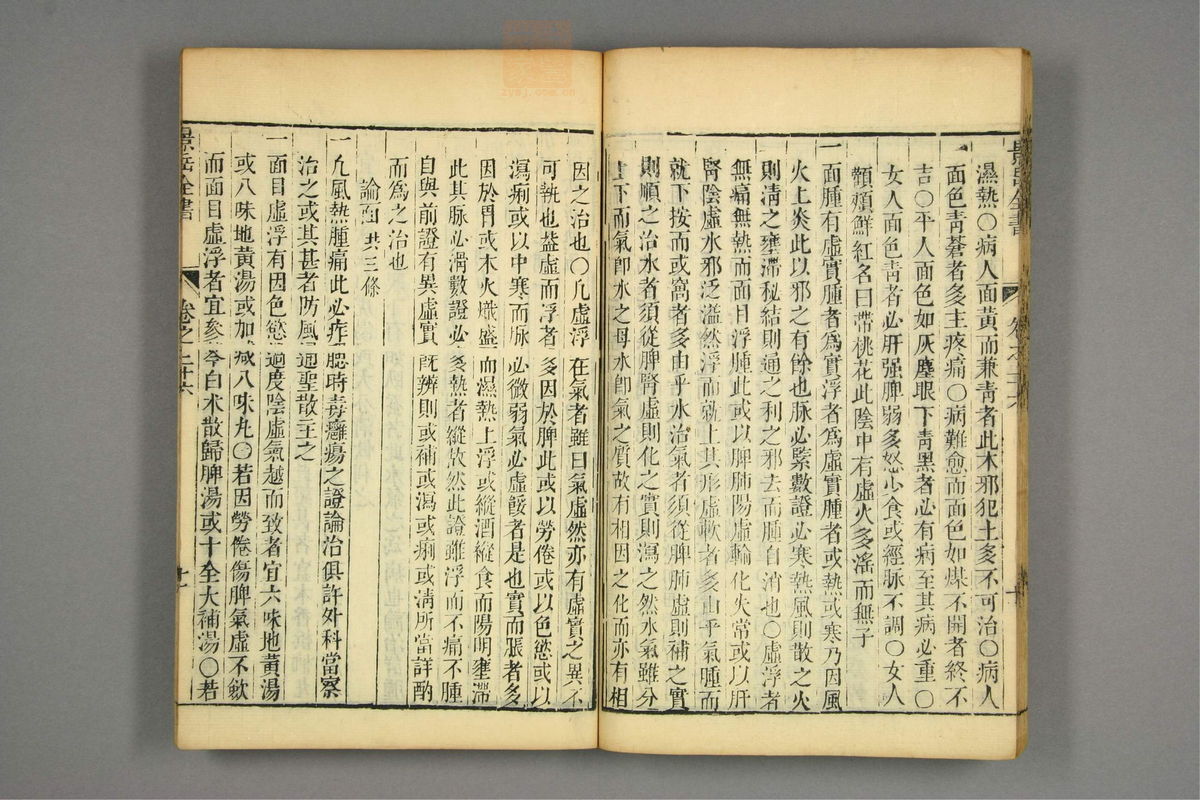 濕熱〇病人面黃而兼青者此木邪犯土多不可治〇病人
面色青蒼者多主疼痛〇病難愈而面色如煤不開者終不
吉〇平人面色如灰塵眼下青黑者必有病至其病必重〇
女人面色青者必肝强脾弱多怒少食或經脉不調〇女人
顴頰鮮紅名曰帶桃花此陰中有虛火多滛而無子
一面腫有虛實腫者爲實浮者爲虛實腫者或熱或寒乃因風
火上炎此以邪之有餘也脉必緊數證必寒熱風則散之火
則淸之壅滯秘結則通之利之邪去而腫自消也〇虛浮者
無痛無熱而面目浮腫此或以脾肺陽虛輸化失常或以肝
腎陰虛水邪泛溢然浮而就上其形虛軟者多由乎氣腫而
就下按而或窩者多由乎水治氣者須從脾肺虛則補之實
則順之治水者須從脾腎虛則化之實則瀉之然水氣雖分
上下而氣卽水之母水卽氣之質故有相因之化而亦有相
因之治也〇凡虛浮在氣者雖曰氣虛然亦有虛實之異不
可執也葢虛而浮者多因於脾此或以勞倦或以色慾或以
瀉痢或以中寒而脉必微弱氣必虛餒者是也實而脹者多
因於胃或木火熾盛而濕熱上浮或縱酒縱食而陽明壅滯
此其脉必滑數證必多熱者縱放然此證雖浮而不痛不腫
自與前證有異虛實旣辨則或補或瀉或痢或淸所當詳酌
而爲之治也
論面 共三條
一凡風熱腫痛此必痄腮時毒癰瘍之證論治俱詳外科當察
治之或其甚者防風通聖散主之
一面目虛浮有因色慾過度陰虛氣越而致者宜六味地黃湯
或八味地黃湯或加減八味丸〇若因勞倦傷脾氣虛不歛
而面目虛浮者宜參苓白术散歸脾湯或十全大補湯〇若
景岳全書
卷之二十六
十
景岳全書
卷之二十六
十一
zysj.com.cn